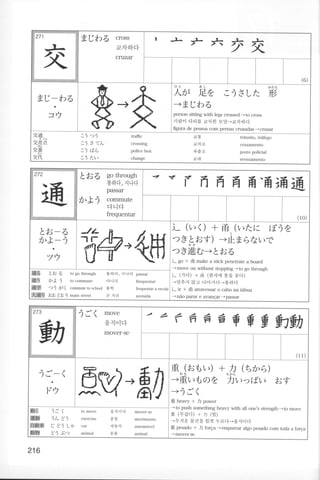 271
交
まじわる cross
교차하다
cruzar
(6)
まじ－わる
・
コウ
人が 足を こうさした 形
→まじわる
person sitting with legs crossed→to cross
figura de pessoa com pernas cruzadas→cruzar
交通 こうつう traffic 교통
交差点 こうさてん crossing 교차점 cruzamento
交番 こうばん police box 파출소 posto policial
交代 こうたい change 교대 revezamento
272
通
とおる go through
통하다, 지나다
passar
かよう commute
다니다
frequentar
(10)
とお－る
かよ－う
・
ツウ
辶（いく）＋甬（いたに ぼうを
つきとおす）→止まらないで
つき進む→とおる
辶 go ＋ 甬 make a stick penetrate a board
→move on without stopping→to go through
→não parar e avançar→passar
通る とおる to go through 통하다, 지나다 passar
通う かよう to commute 다니다 frequentar
通学 つうがく commute to school 통학
大通り おおどおり main street 큰 거리 avenida
273
動
うごく move
움직이다
mover-se
(11)
うご－く
・
ドウ
重（おもい）＋力（ちから）
→重いものを 力いっぱい おす
→うごく
重 heavy ＋ 力 power
→to push something heavy with all one's strength→to move
重 pesado ＋ 力 força→empurrar algo pesado com toda a força
→mover-se
動く うごく to move 움직이다 mover-se
運動 うんどう exercise 운동 movimento
自動車 じどうしゃ car 자동차 automóvel
動物 どうぶつ animal 동물 animal
216